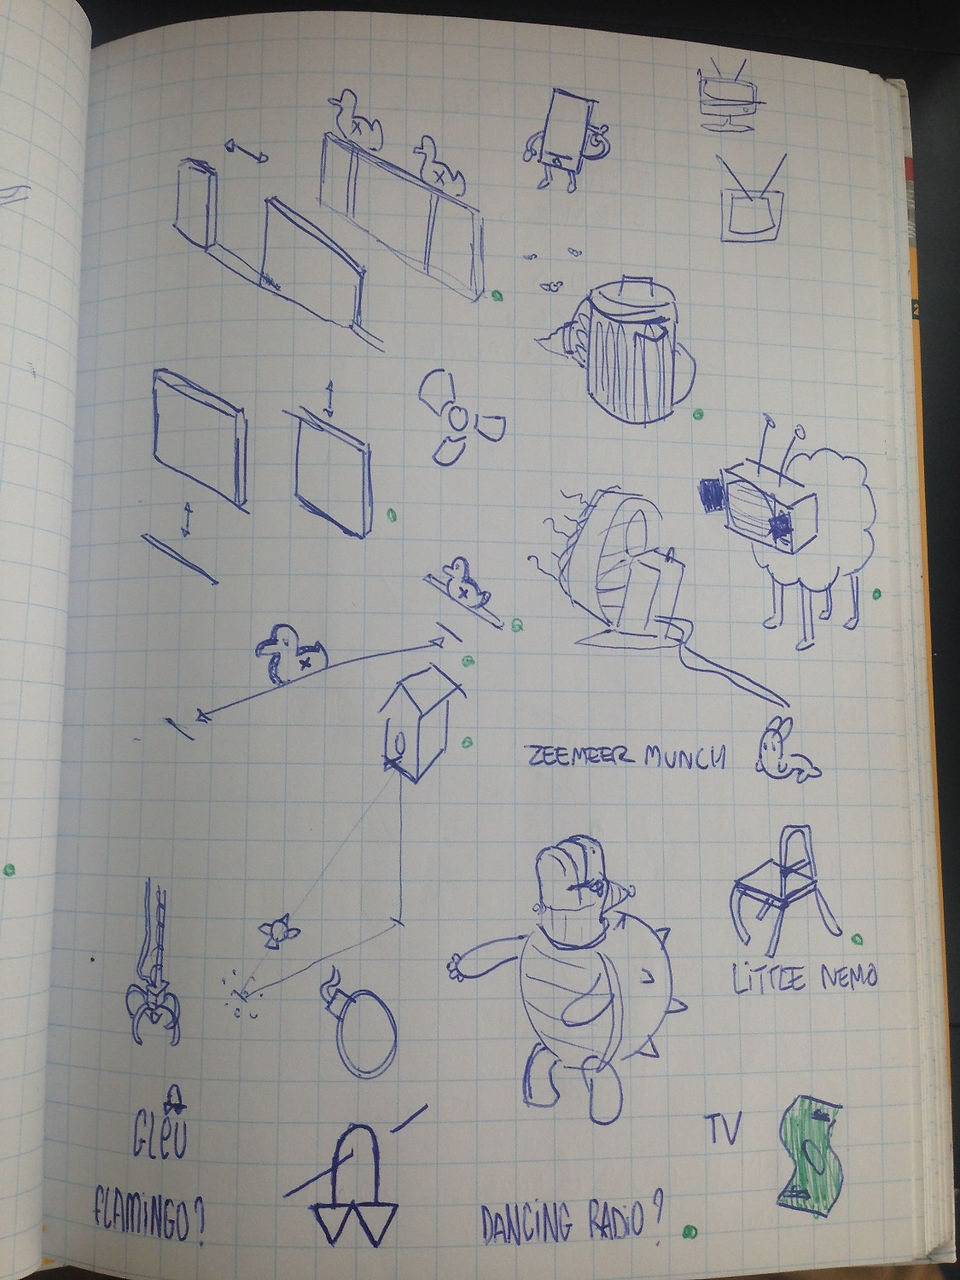 ZEEMEER MUNCH
LITTLE NEMO
GLEU
TV
FLAMINGO?
DANCING RADIO?
2